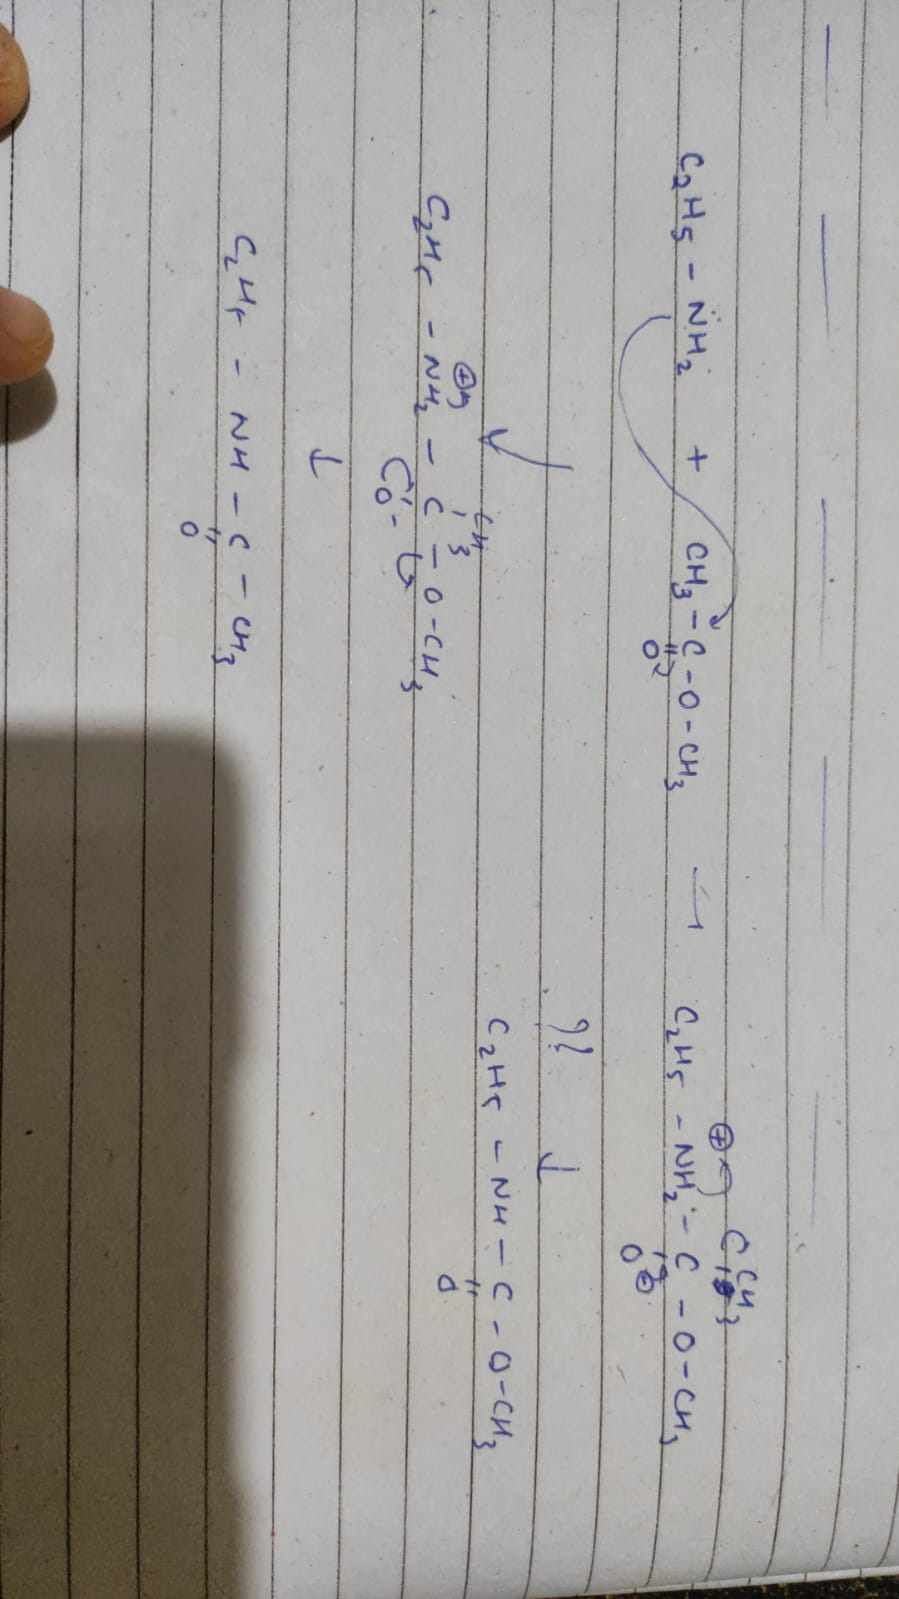 C₂H₅ - N̈H₂ + CH₃ - C - O - CH₃ → C₂H₅ - NH₂ - C - O - CH₃
O
⊕
CH₃
O ⊖
??
↓
C₂H₅ - NH - C - O - CH₃
O
C₂H₅ - NH₂ - C - O - CH₃
⊕
CH₃
O -
↓
C₂H₅ - NH - C - CH₃
O